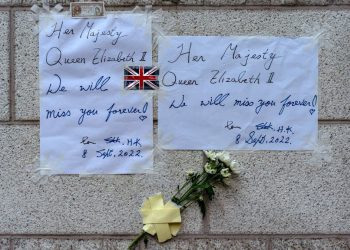 Her Majesty
Queen Elizabeth II
We will
miss you forever!
H.K.
8 Sept. 2022.
Her Majesty
Queen Elizabeth II
We will miss you forever!
H.K.
8 Sept. 2022.